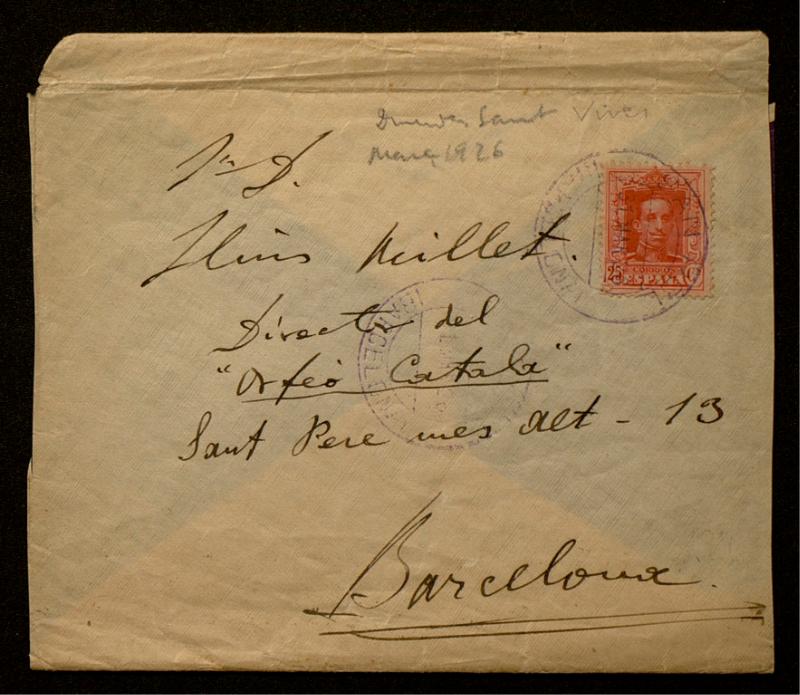 Sant Vives
Març 1926
Sr. D.
Lluis Millet.
Director del
"Orfeó Català"
Sant Pere mes Alt - 13
Barcelona.
25 CORREOS Cs
ESPAÑA